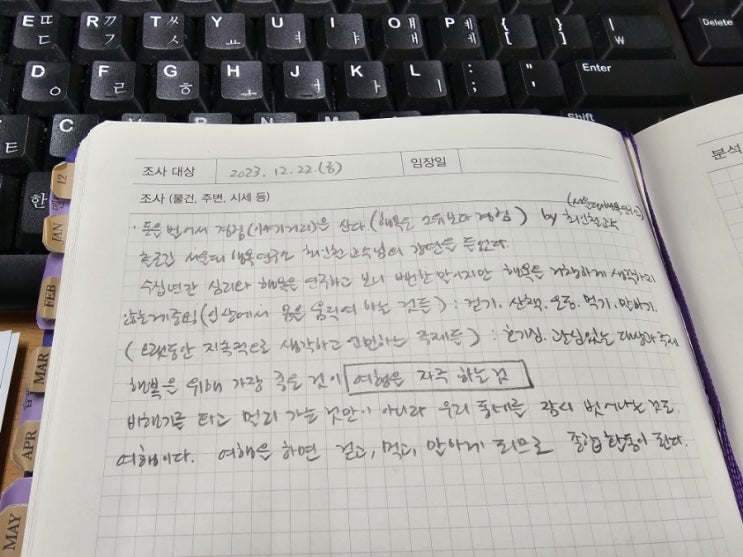 E ㄸ ㄷ R ㄲ ㄱ T ㅆ ㅅ Y ㅛ U ㅕ I ㅑ O ㅒ ㅐ P ㅖ ㅔ { [ } ] | ₩ Delete
D ㅇ F ㄹ G ㅎ H ㅗ J ㅓ K ㅏ L ㅣ : ; " ' Enter
C Shift
한
조사 대상 2023. 12. 22. (금) 임장일
분석
조사 (물건, 주변, 시세 등)
(서울대행복연구소)
· 돈을 벌어서 경험(이야기거리)을 산다. (행복은 소유보다 경험) by 최인철교수
출근길 서울대 행복연구소 최인철교수님의 강연을 들었다.
수십년간 심리와 행복을 연구하고 보니 뻔한 말이지만 행복은 거창하게 생각하지
않는게 중요 (일상에서 몸을 움직여 하는 것들) : 걷기. 산책. 운동. 먹기. 말하기.
(오랫동안 지속적으로 생각하고 고민하는 주제들) : 호기심. 관심있는 대상과 주제
행복을 위해 가장 좋은 것이 여행을 자주 하는 것
비행기를 타고 멀리 가는 것만이 아니라 우리 동네를 잠시 벗어나는 것도
여행이다. 여행을 하면 걷고, 먹고, 말하게 되므로 종합활동이 된다.
12
JAN
FEB
MAR
APR
MAY